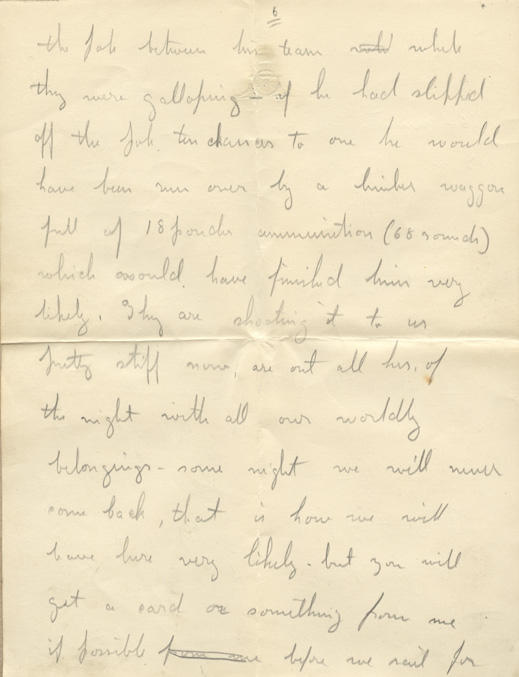 6
the pole between his team while
they were galloping - if he had slipped
off the pole ten chances to one he would
have been run over by a limber waggon
full of 18 pounder ammunition (68 rounds)
which would have finished him very
likely. They are shooting it to us
pretty stiff now, are out all hrs. of
the night with all our worldly
belongings - some night we will never
come back, that is how we will
leave here very likely - but you will
get a card or something from me
if possible from me before we sail for